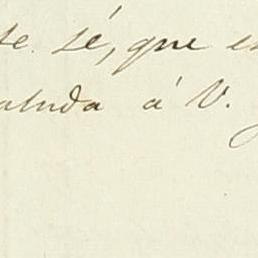 te sé, que es
aluda á V.